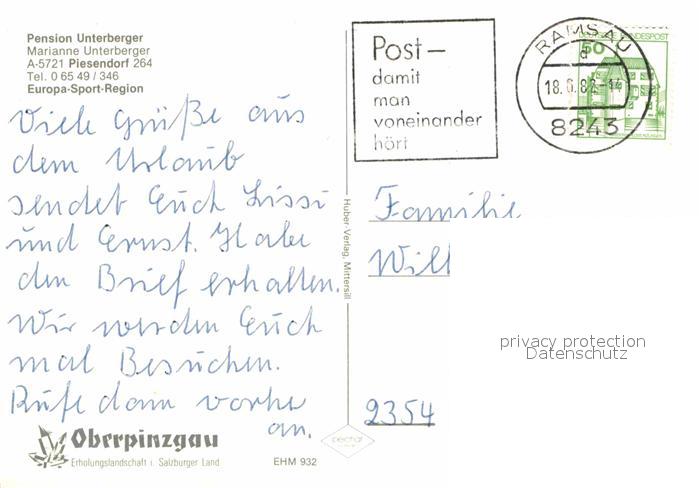 Pension Unterberger
Marianne Unterberger
A-5721 Piesendorf 264
Tel. 0 65 49 / 346
Europa-Sport-Region
Viele Grüße aus
dem Urlaub
sendet Euch Lissi
und Ernst. Habe
den Brief erhalten.
Wir werden Euch
mal Besuchen.
Rufe dann vorher
an.
Oberpinzgau
Erholungslandschaft i. Salzburger Land
EHM 932
Huber-Verlag, Mittersill
Post –
damit
man
voneinander
hört
RAMSAU
a
18.6.82-14
8243
50
BUNDESPOST
Familie
Will
privacy protection
Datenschutz
2354